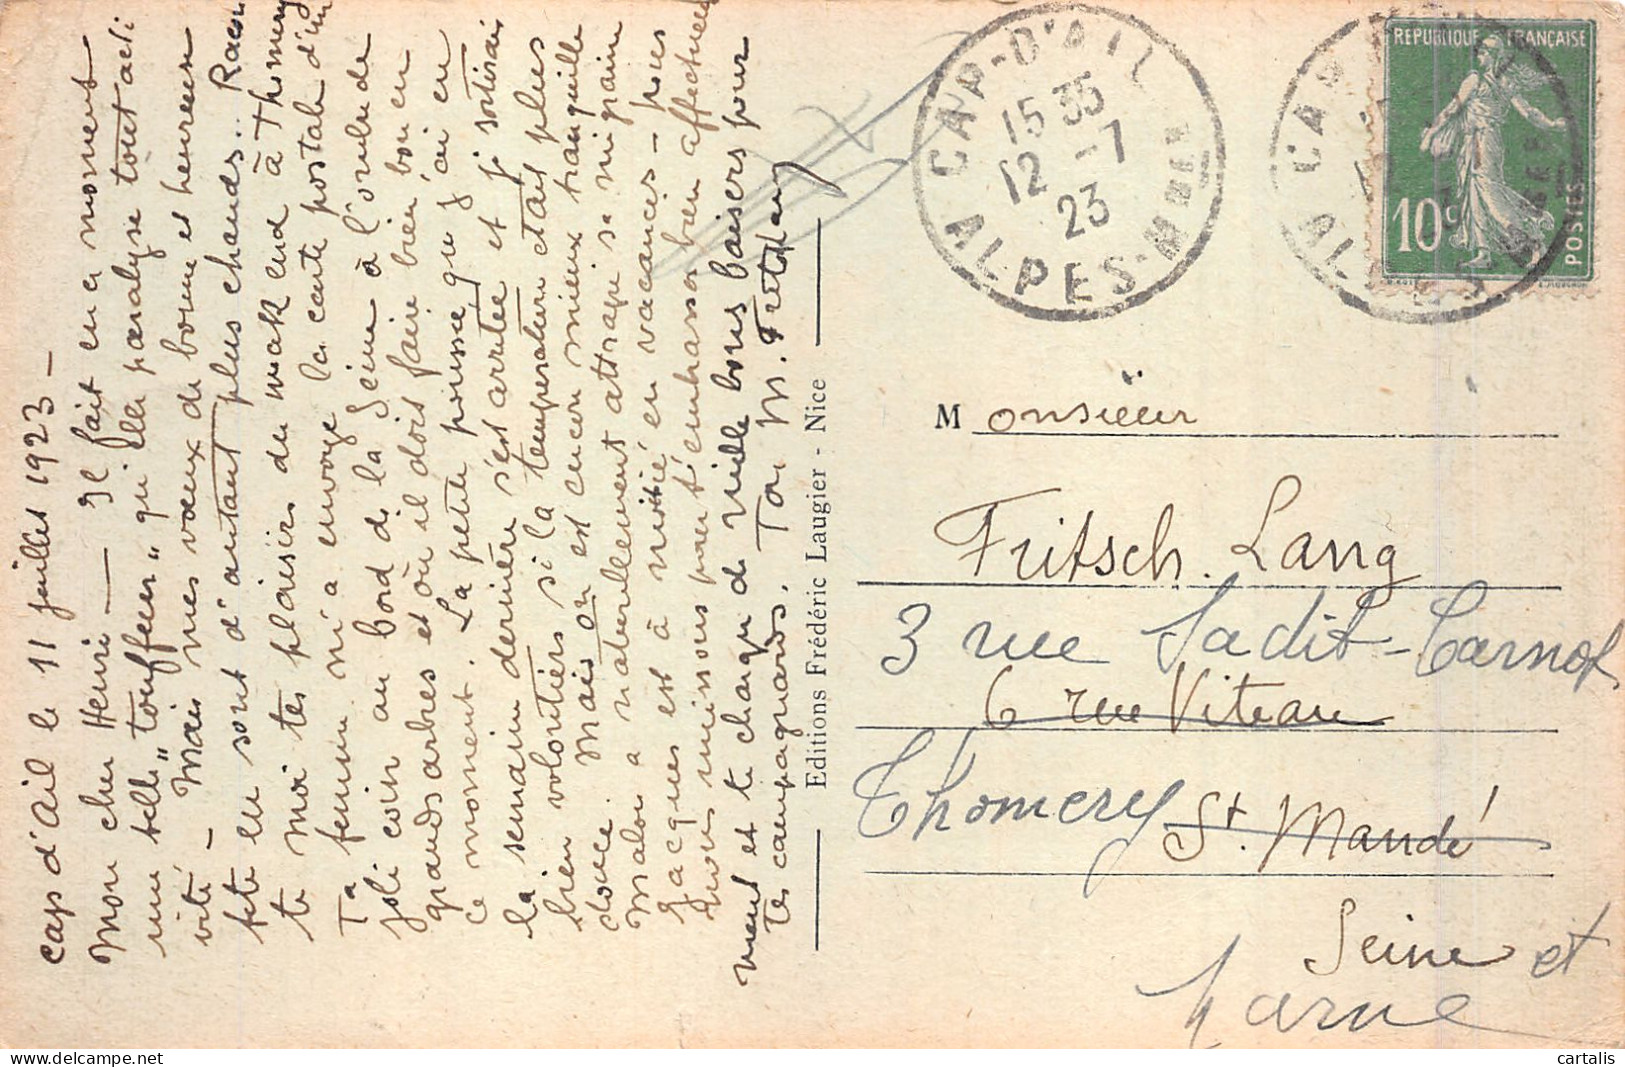 cap d'ail le 11 juillet 1923 –
Mon cher Henri — Il fait en ce moment
une telle "touffeur" qu'elle paralyse toute acti
vité – Mais mes vœux de bonne et heureuse
fête en sont d'autant plus chauds..
te moi tes plaisirs du week end à Thomery
Ta femme m'a envoyé la carte postale d'un
joli coin au bord de la Seine à l'ombre de
grands arbres et où il doit faire bien bon en
ce moment. La petite poussée que j'ai eu
la semaine dernière s'est arrêtée et je sortirais
bien volontiers si la température était plus
douce. Mais on est encore mieux tranquille
Malou a naturellement attrapé sa migraine
Jacques est à moitié en vacances –
nous pour t'embrasser bien affectueuse
ment et te charger de mille bons baisers pour
tes campagnards. Ton M.
Editions Frédéric Laugier - Nice
CAP-D'AIL
15 35
12 -7
23
ALPES-MMES
RÉPUBLIQUE FRANÇAISE
10c
POSTES
Monsieur
Fritsch. Lang
3 rue Sadit-Carnot
6 rue Viteau
Thomery St. Mandé
Seine et
Marne
cartalis